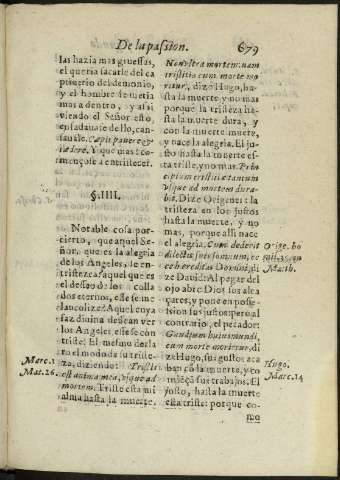 De la passion.
679
las hazia mas gruessas,
el queria sacarle del ca
ptiuerio del demonio,
y el hombre se metia
mas a dentro, y assi
viendo el Señor esto,
enfadauase dello, can-
sauase. Cœpit pauere et
tædere. Y que mas? co-
mençose a entristecer.
§. IIII.
Notable cosa por-
cierto, que aquel Se-
ñor, que es la alegria
de los Angeles, se en-
tristezca: aquel que es
el desseo de los colla
dos eternos, esse se me
lancolize? Aquel cuya
faz diuina dessean ver
los Angeles esse se en
triste! El mesmo decla
ro el modo de su triste
za, diziendo: Tristis
est anima mea, vsque ad
mortem. Triste esta mi
alma hasta la muerte.
Marc. 14
Mat. 26.
Non vltra mortem: nam
tristitia cum morte mo
ritur, dize Hugo, has-
ta la muerte y no mas
porque la tristeza has-
ta la muerte dura, y
con la muerte muere,
y nace la alegria. El jus
to hasta la muerte es-
ta triste, y no mas. Prin
cipium tristitiæ tantum
vsque ad mortem dura-
bit. Dize Origenes: la
tristeza en los justos
hasta la muerte, y no
mas, porque alli nace
el alegria. Cum dederit
dilectis suis somnum, ec
ce hereditas Domini, di
ze Dauid: Al pegar del
ojo abre Dios sus alca
çares, y pone en posse-
sion sus justos: pero al
contrario, el pecador:
Gaudium huius mundi,
cum morte morietur, di
ze Hugo, sus gustos aca
ban con la muerte, y co
miẽçã sus trabajos. El
justo, hasta la muerte
esta triste: porque co-
mo
Orige. ho
mil. 35. in
Math.
Hugo.
Marc. 14